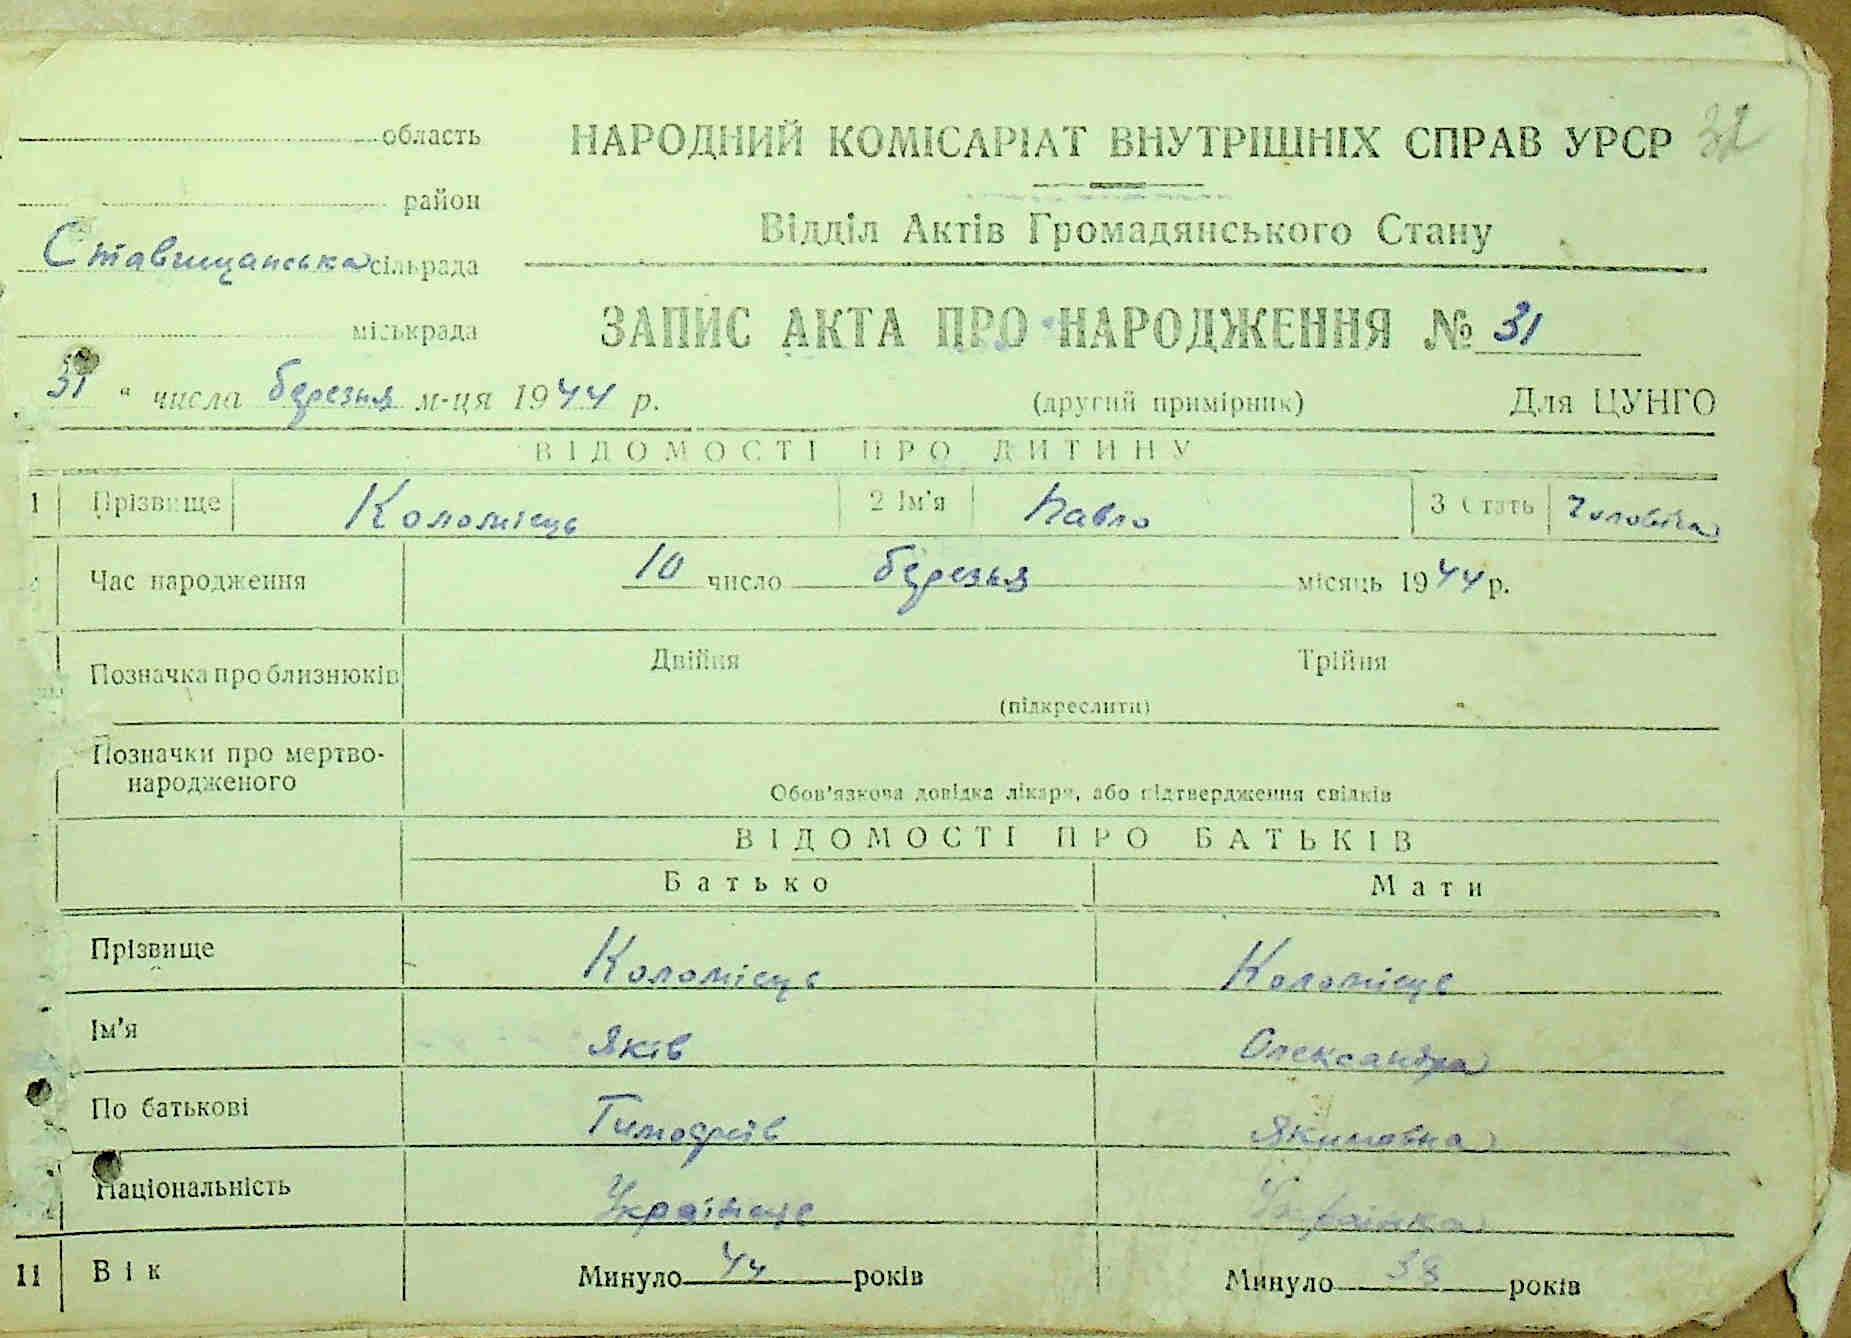 область
район
Ставищанська сільрада
міськрада
НАРОДНИЙ КОМІСАРІАТ ВНУТРІШНІХ СПРАВ УРСР 32
Відділ Актів Громадянського Стану
ЗАПИС АКТА ПРО НАРОДЖЕННЯ № 31
31 " числа березня м-ця 1944 р. (другий примірник) Для ЦУНГО
ВІДОМОСТІ ПРО ДИТИНУ
1 Прізвище Коломієць 2 Ім'я Павло 3 Стать Чоловіча
Час народження 10 число березня місяць 1944 р.
Позначка про близнюків Двійня Трійня
(підкреслити)
Позначки про мертво-
народженого
Обов'язкова довідка лікаря, або підтвердження свідків
ВІДОМОСТІ ПРО БАТЬКІВ
Батько Мати
Прізвище Коломієць Коломієць
Ім'я Яків Олександра
По батькові Тимофіїв Якимовна
Національність Українець Українка
11 Вік Минуло 44 років Минуло 38 років